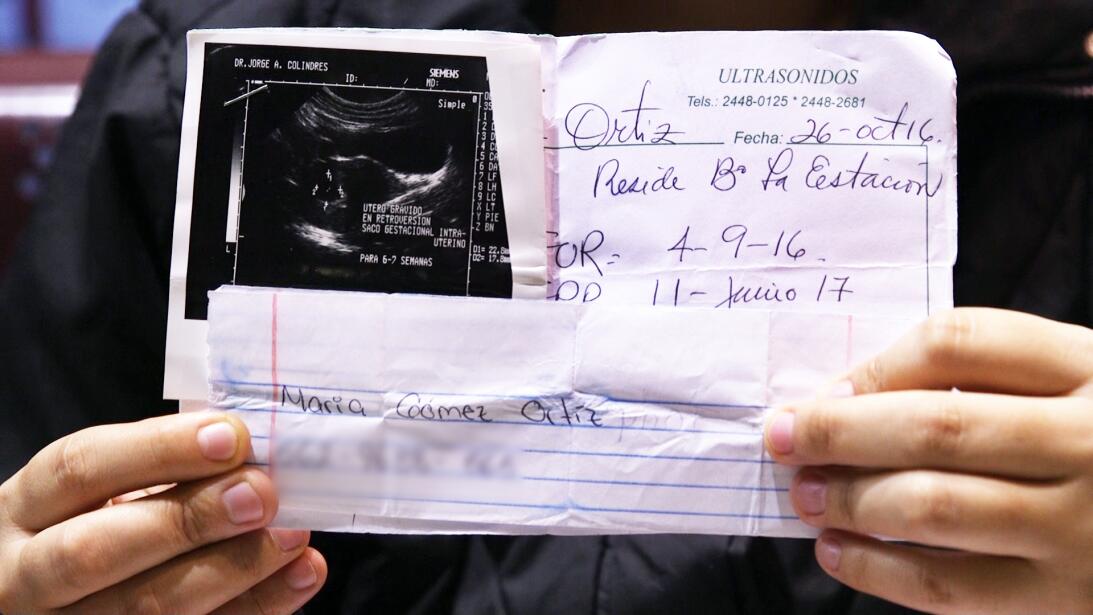 DR.JORGE A. COLINDRES
ID: /
SIEMENS
MD:
Simple
UTERO GRAVIDO
EN RETROVERSION
SACO GESTACIONAL INTRA-
UTERINO
PARA 6-7 SEMANAS
D1= 22.8m
D2= 17.8m
ULTRASONIDOS
Tels.: 2448-0125 * 2448-2681
Ortiz Fecha: 26-oct 16.
Reside Bº La Estación
FUR= 4-9-16.
11-Junio 17
Maria Goómez Ortiz